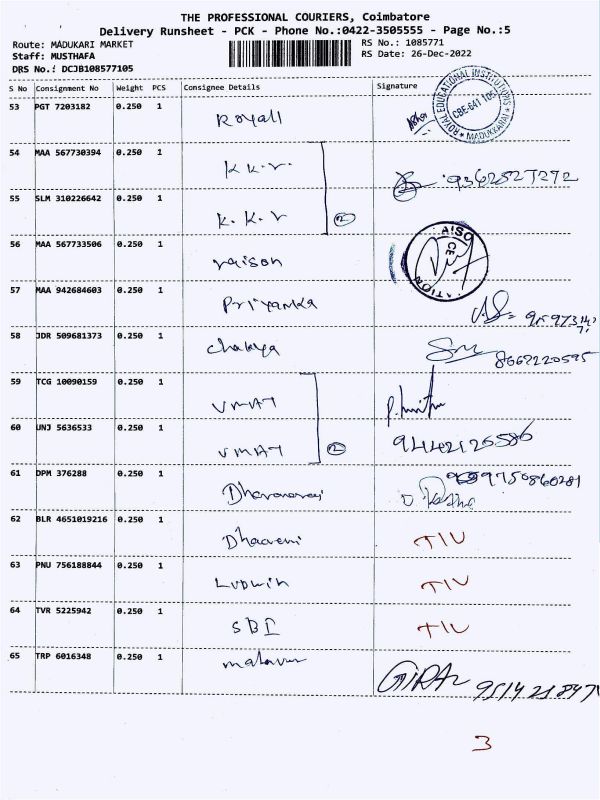 THE PROFESSIONAL COURIERS, Coimbatore
Delivery Runsheet - PCK - Phone No.:0422-3505555 - Page No.:5
Route: MADUKARI MARKET
RS No.: 1085771
Staff: MUSTHAFA
RS Date: 26-Dec-2022
DRS No.: DCJB108577105
S No Consignment No Weight PCS Consignee Details Signature
ROYAL EDUCATIONAL INSTITUTIONS CBE-641 105 MADUKKARAI
53 PGT 7203182 0.250 1 Royall
54 MAA 567730394 0.250 1 K.K.V. 9362527272
55 SLM 310226642 0.250 1 K.K.V 2
56 MAA 567733506 0.250 1 raison
57 MAA 942684603 0.250 1 Priyanka
58 JDR 509681373 0.250 1 Chaya 8667220595
59 TCG 10090159 0.250 1 VMAT
60 UNJ 5636533 0.250 1 VMAT 2 9442126586
61 DPM 376288 0.250 1 9750860281
62 BLR 4651019216 0.250 1 TIV
63 PNU 756188844 0.250 1 Ludwin TIV
64 TVR 5225942 0.250 1 SBI TIV
65 TRP 6016348 0.250 1
3